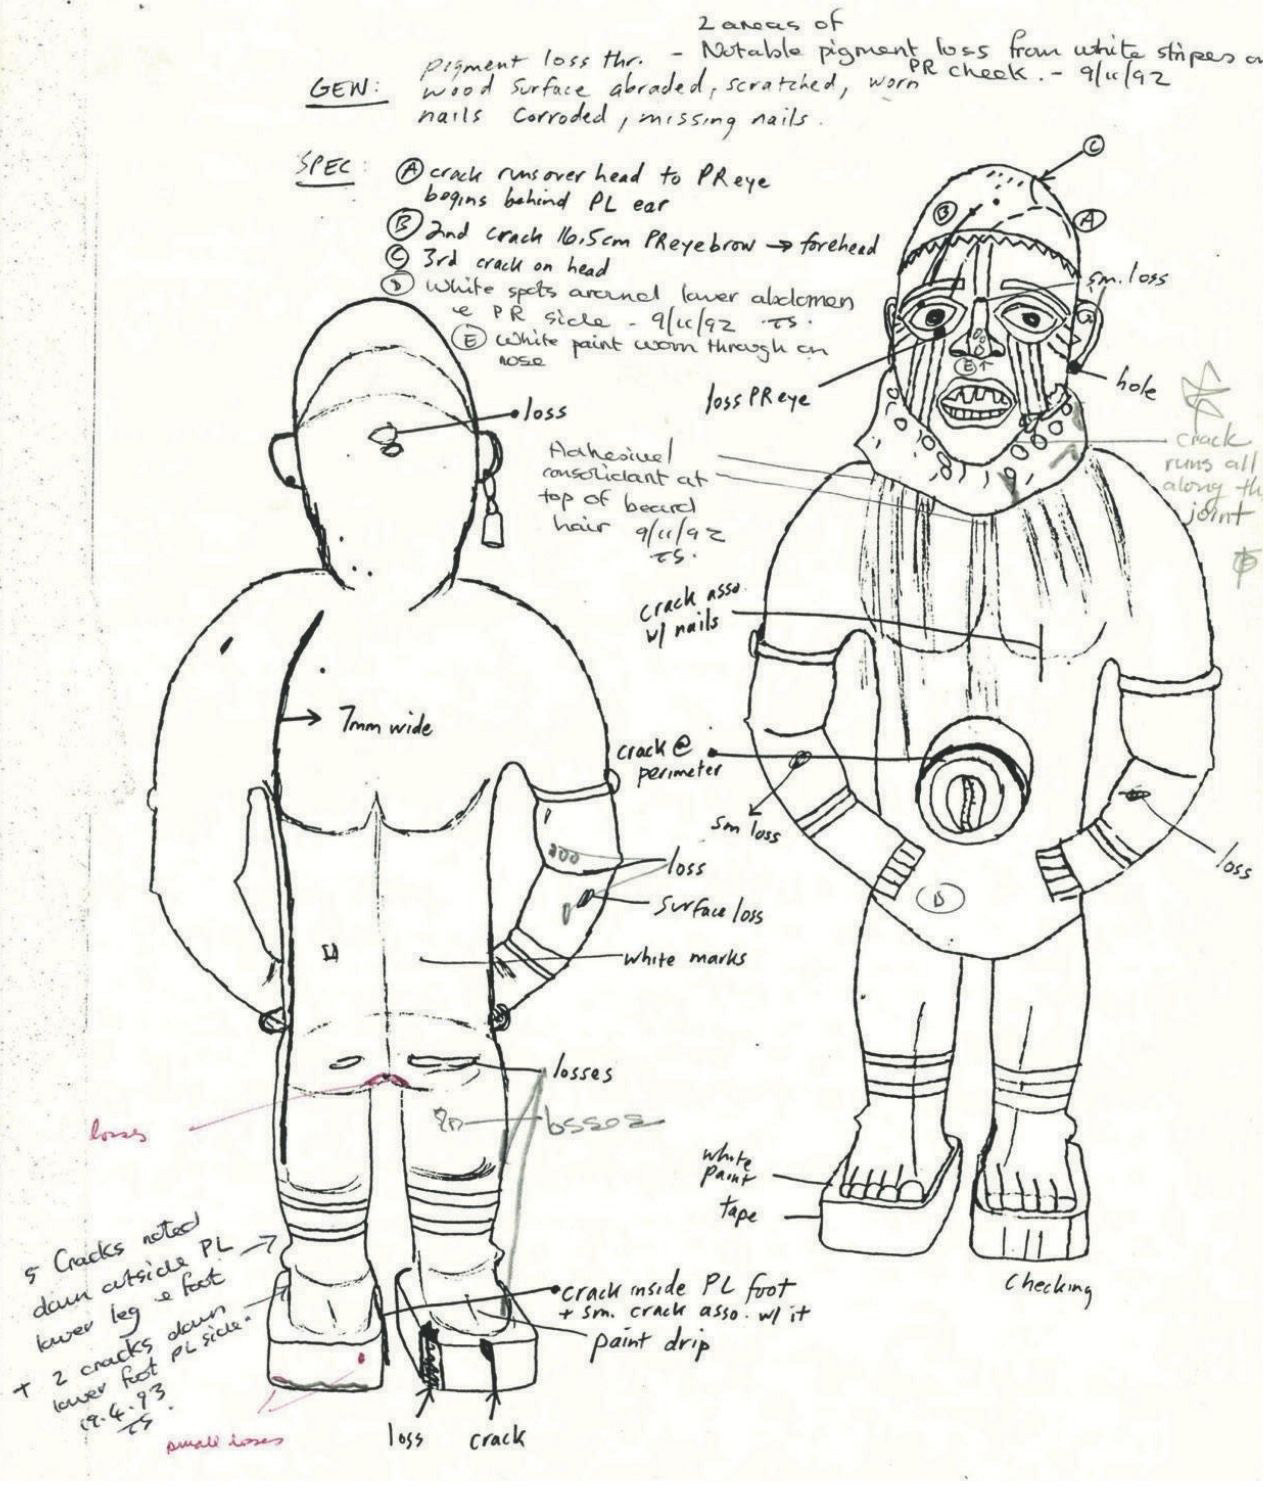 2 areas of
- Notable pigment loss from white stripes on
PR cheek. - 9/11/92
GEN: pigment loss thr.
wood surface abraded, scratched, worn
nails corroded, missing nails.
SPEC: Ⓐ crack runs over head to PR eye
begins behind PL ear
Ⓑ 2nd crack 16.5cm PR eyebrow → forehead
Ⓒ 3rd crack on head
Ⓓ White spots around lower abdomen
e PR side - 9/11/92 TS.
Ⓔ White paint worn through on
nose
Ⓒ
Ⓑ
Ⓐ
sm. loss
Ⓔ↑
loss PR eye
hole
loss
Adhesive/
consolidant at
top of beard
hair 9/11/92
TS.
crack
runs all
along the
joint
crack asso.
w/ nails
7mm wide
crack @
perimeter
sm loss
loss
loss
surface loss
Ⓓ
white marks
losses
losses
losses
white
paint
tape
5 Cracks noted
down outside PL
lower leg e foot
+ 2 cracks down
lower foot PL side.
19.4.93
TS.
crack inside PL foot
+ sm. crack asso. w/ it
paint drip
checking
small losses
loss
crack